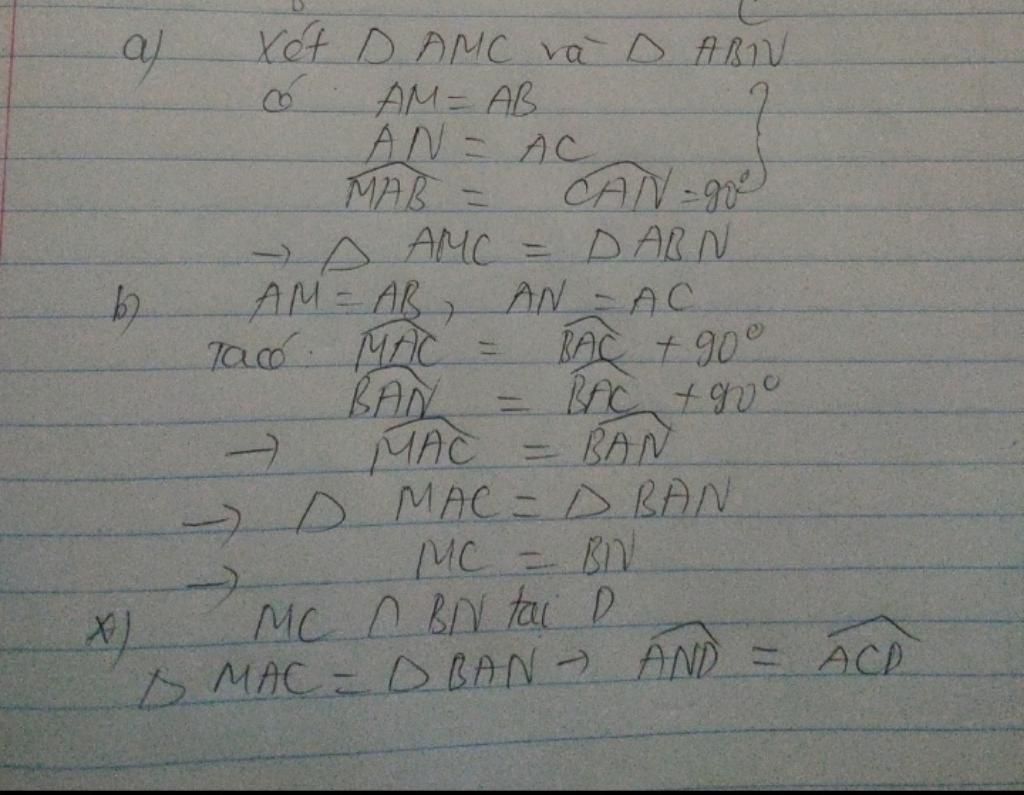 a) Xét Δ AMC và Δ ABN
có AM = AB
AN = AC
MAB = CAN = 90°
→ Δ AMC = Δ ABN
b) AM = AB, AN = AC
Ta có: MAC = BAC + 90°
BAN = BAC + 90°
→ MAC = BAN
→ Δ MAC = Δ BAN
→ MC = BN
*) MC ∩ BN tại D
Δ MAC = Δ BAN → AND = ACD